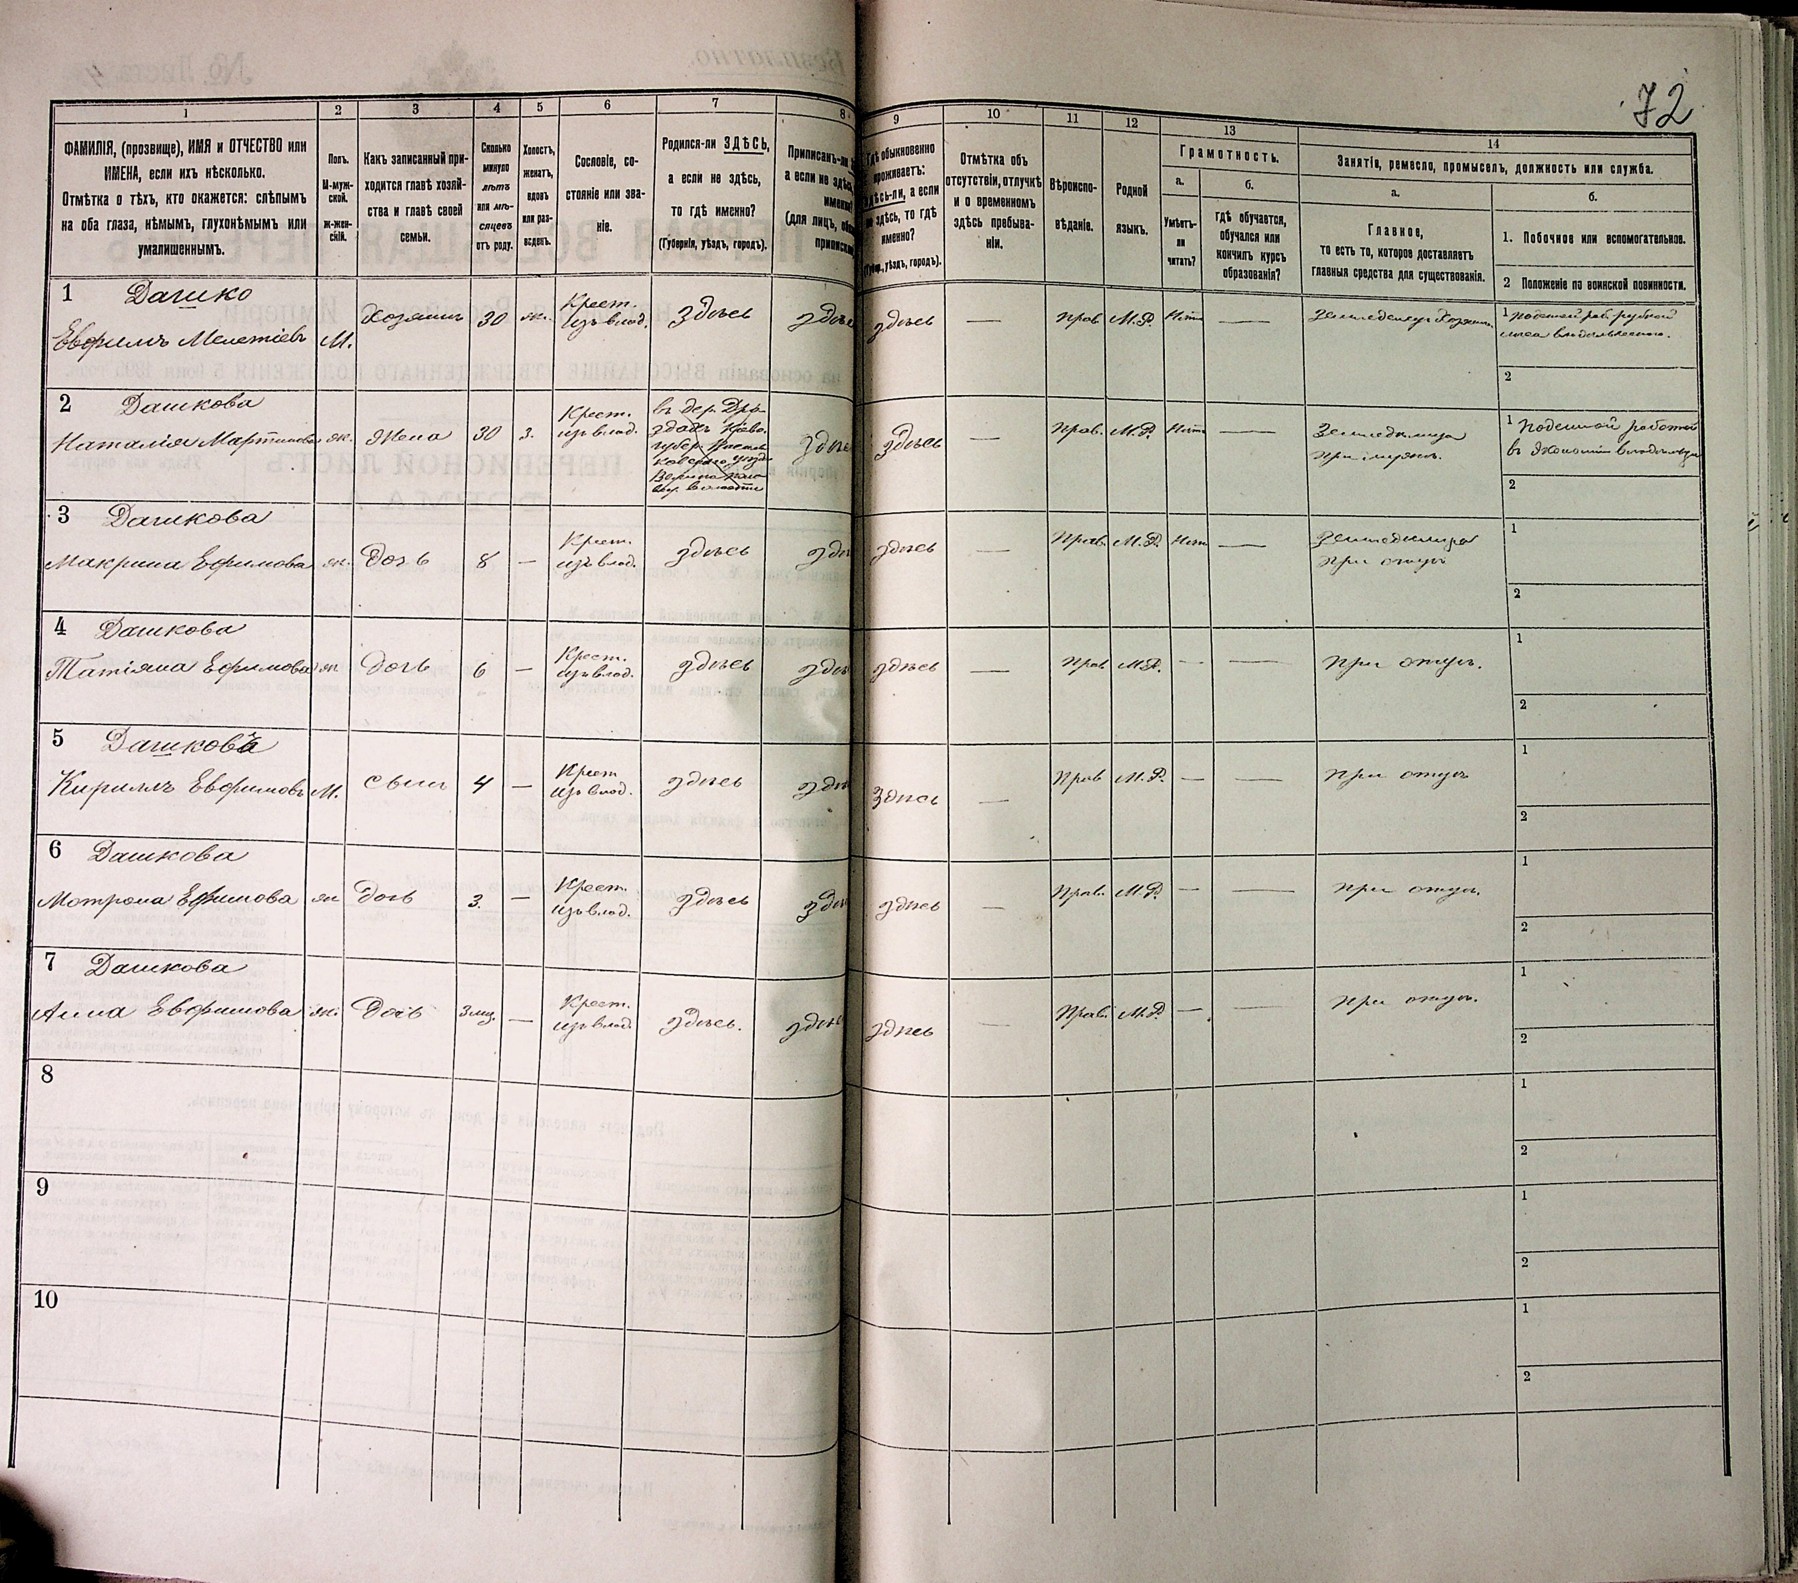 72
1
2
3
4
5
6
7
8
9
10
11
12
13
14
ФАМИЛІЯ, (прозвище), ИМЯ и ОТЧЕСТВО или
ИМЕНА, если ихъ нѣсколько.
Отмѣтка о тѣхъ, кто окажется: слѣпымъ
на оба глаза, нѣмымъ, глухонѣмымъ или
умалишеннымъ.
Полъ.
М-муж-
ской.
ж-жен-
скій.
Какъ записанный при-
ходится главѣ хозяй-
ства и главѣ своей
семьи.
Сколько
минуло
лѣтъ
или мѣ-
сяцевъ
отъ роду.
Холостъ,
женатъ,
вдовъ
или раз-
веденъ.
Сословіе, со-
стояніе или зва-
ніе.
Родился-ли ЗДѢСЬ,
а если не здѣсь,
то гдѣ именно?
(Губернія, уѣздъ, городъ).
Приписанъ-ли
а если не здѣсь
именно?
(для лицъ,
Гдѣ обыкновенно
проживаетъ:
здѣсь-ли, а если
не здѣсь, то гдѣ
именно?
(Губер., уѣздъ, городъ).
Отмѣтка объ
отсутствіи, отлучкѣ
и о временномъ
здѣсь пребыва-
ніи.
Вѣроиспо-
вѣданіе.
Родной
языкъ.
Грамотность.
а.
Умѣетъ-
ли
читать?
б.
гдѣ обучается,
обучался или
кончилъ курсъ
образованія?
Занятіе, ремесло, промыселъ, должность или служба.
а.
Главное,
то есть то, которое доставляетъ
главныя средства для существованія.
б.
1. Побочное или вспомогательное.
2 Положеніе по воинской повинности.
1 Дашко
Евфимъ Мелетіевъ М. Хозяинъ 30 жен. Крест. изъ влад. здѣсь здѣсь здѣсь — прав. М.Р. Нѣтъ — Земледѣлецъ Хозяинъ. 1 поденной раб. рубкой
лѣса
2
2 Дашкова
Наталія Мартинова ж. Жена 30 з. Крест. изъ влад.
въ дер. Дро-
здахъ Кіево.
губер.
здѣсь здѣсь — Прав. М.Р. Нѣтъ
Земледѣлица
при мужѣ.
1 Поденной работой
въ экономіи
2
3 Дашкова
Макрина Ефимова ж. Дочь 8 — Крест. изъ влад. здѣсь здѣсь здѣсь — Прав. М.Р. Нѣтъ — Земледѣлица
при отцѣ
1
2
4 Дашкова
Татіяна Ефимова ж. Дочь 6 — Крест. изъ влад. здѣсь здѣсь здѣсь — Прав М.Р. - — при отцѣ.
1
2
5 Дашковъ
Кириллъ Евфимовъ М. сынъ 4 — Крест изъ влад. здѣсь здѣсь здѣсь — Прав М.Р. — — при отцѣ
1
2
6 Дашкова
Мотрона Ефимова ж Дочь 3. — Крест. изъ влад. здѣсь здѣсь здѣсь — Прав. М.Р. — — при отцѣ.
1
2
7 Дашкова
Анна Евфимова ж. Дочь 3 мц. — Крест. изъ влад. здѣсь. здѣсь здѣсь — Прав. М.Р. — — при отцѣ.
1
2
8
1
2
9
1
2
10
1
2